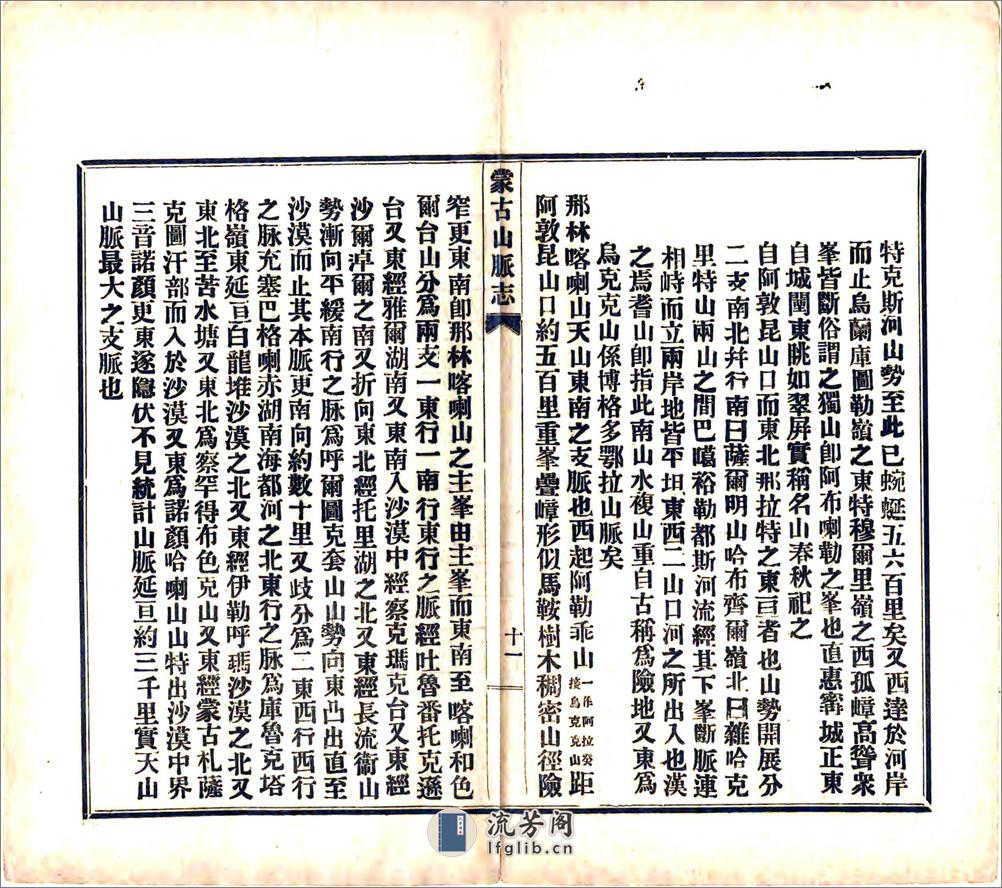 特克斯河山勢至此已蜿蜒五六百里矣又西達於河岸
而止烏蘭庫圖勒嶺之東特穆爾里嶺之西孤嶂高聳衆
峯皆斷俗謂之獨山卽阿布喇勒之峯也直惠甯城正東
自城闉東眺如翠屏實稱名山春秋祀之
自阿敦昆山口而東北那拉特之東亘者也山勢開展分
二支南北幷行南曰薩爾明山哈布齊爾嶺北曰雜哈克
里特山兩山之間巴噶裕勒都斯河流經其下峯斷脈連
相峙而立兩岸地皆平坦東西二山口河之所出入也漢
之焉耆山卽指此南山水複山重自古稱爲險地又東爲
烏克克山係博格多鄂拉山脈矣
那林喀喇山天山東南之支脈也西起阿勒乖山一作阿拉癸接烏克克山距
阿敦昆山口約五百里重峯疊嶂形似馬鞍樹木稠密山徑險
蒙古山脈志
十一
窄更東南卽那林喀喇山之主峯由主峯而東南至喀喇和色
爾台山分爲兩支一東行一南行東行之脈經吐魯番托克遜
台又東經雅爾湖南又東南入沙漠中經察克瑪克台又東經
沙爾淖爾之南又折向東北經托里湖之北又東經長流衞山
勢漸向平緩南行之脈爲呼爾圖克套山山勢向東凸出直至
沙漠而止其本脈更南向約數十里又歧分爲二東西行西行
之脈充塞巴格喇赤湖南海都河之北東行之脈爲庫魯克塔
格嶺東延亘白龍堆沙漠之北又東經伊勒呼瑪沙漠之北又
東北至苦水塘又東北爲察罕得布色克山又東經蒙古札薩
克圖汗部而入於沙漠又東爲諾顏哈喇山山特出沙漠中界
三音諾顏更東遂隱伏不見統計山脈延亘約三千里實天山
山脈最大之支脈也
流芳阁
lfglib.cn